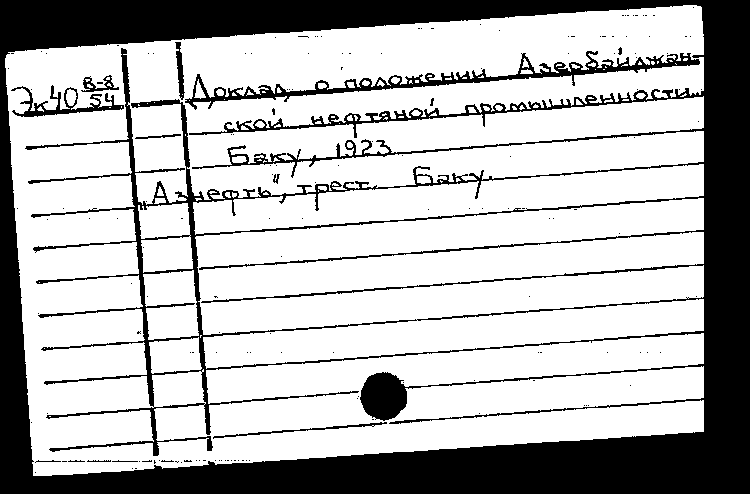 Эк40 В-8/54
Доклад о положении Азербайджан-
ской нефтяной промышленности...
Баку, 1923
„Азнефть", трест. Баку.